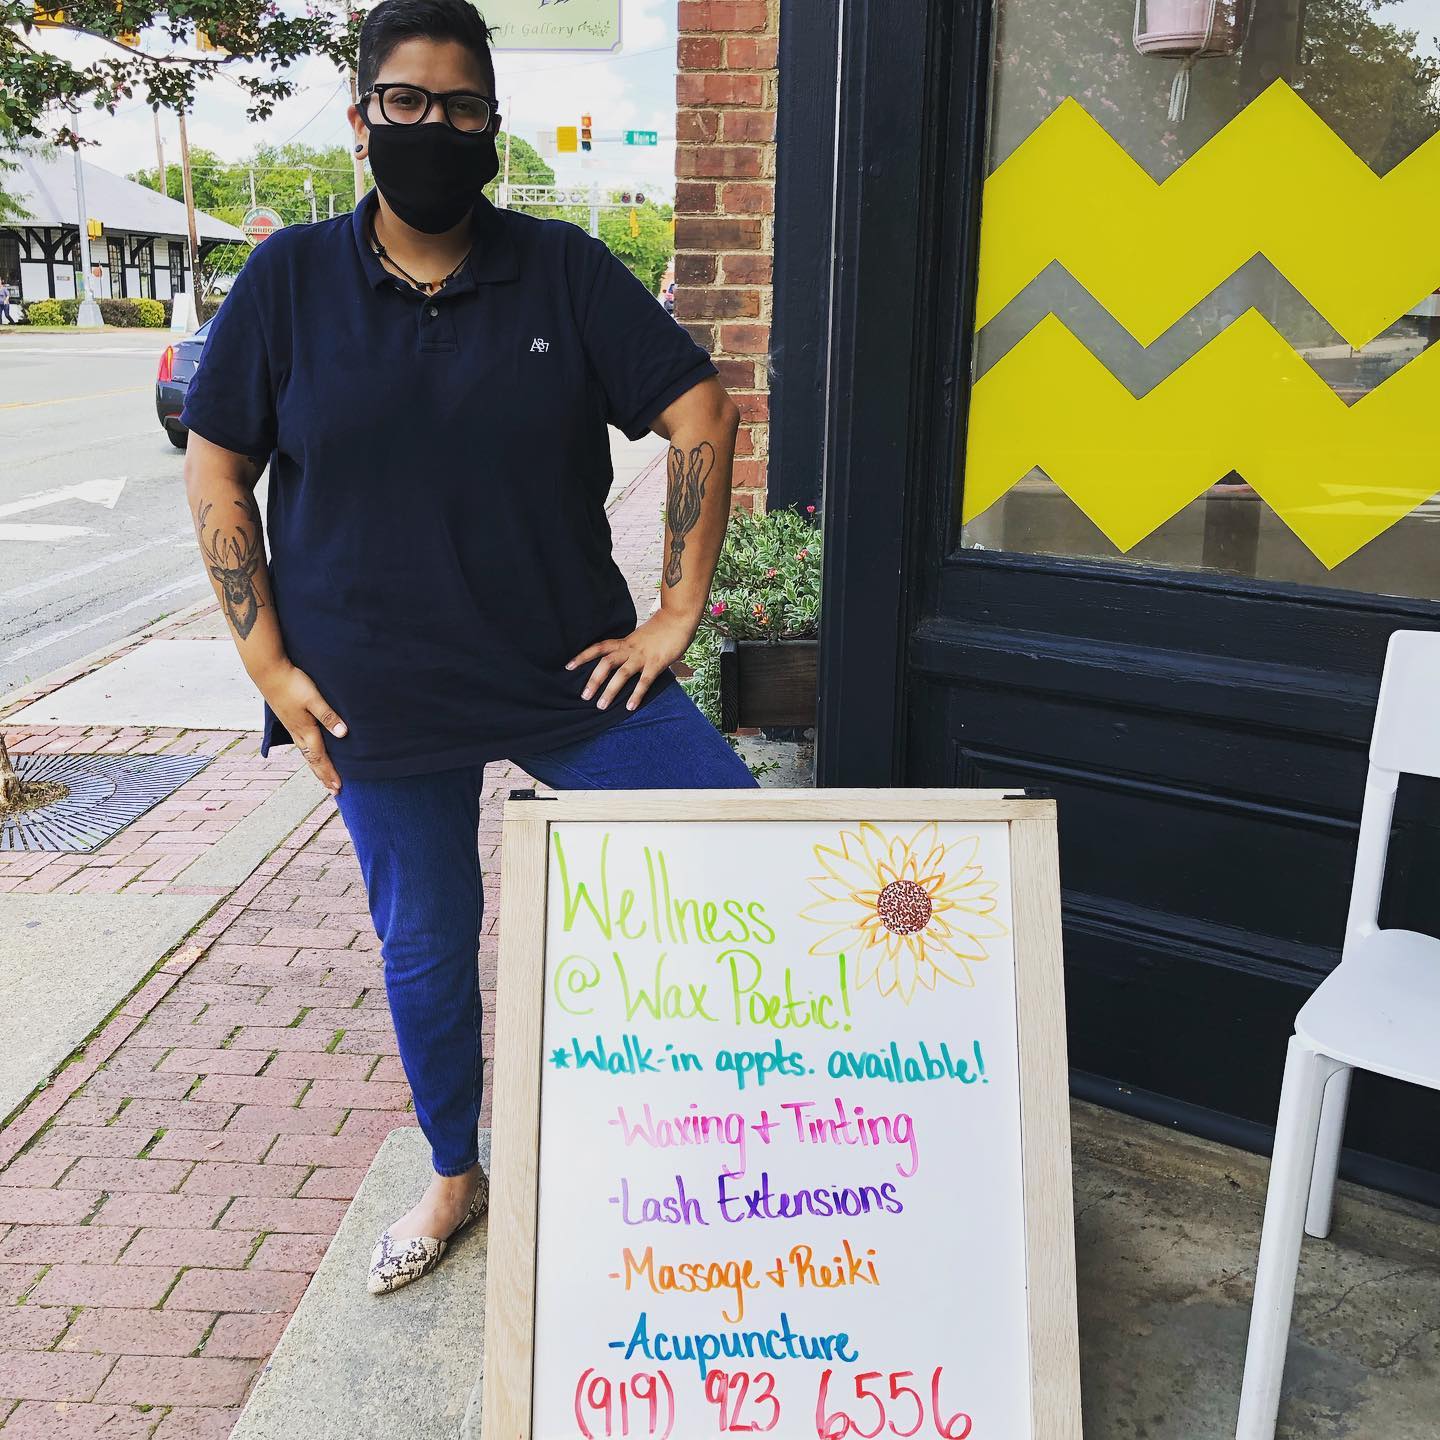 ft Gallery
E Main
CARRBORO
Wellness
@ Wax Poetic!
*Walk-in appts. available!
-Waxing + Tinting
-Lash Extensions
-Massage + Reiki
-Acupuncture
(919) 923 6556